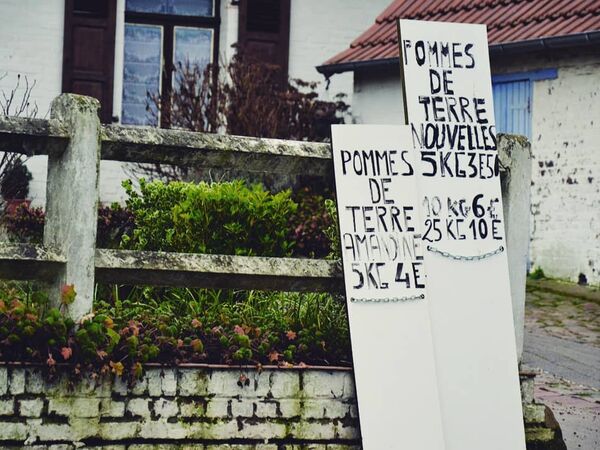 POMMES
DE
TERRE
AMANDINE
5KG 4E
POMMES
DE
TERRE
NOUVELLES
5KG 3E5
10 KG 6€
25 KG 10 E